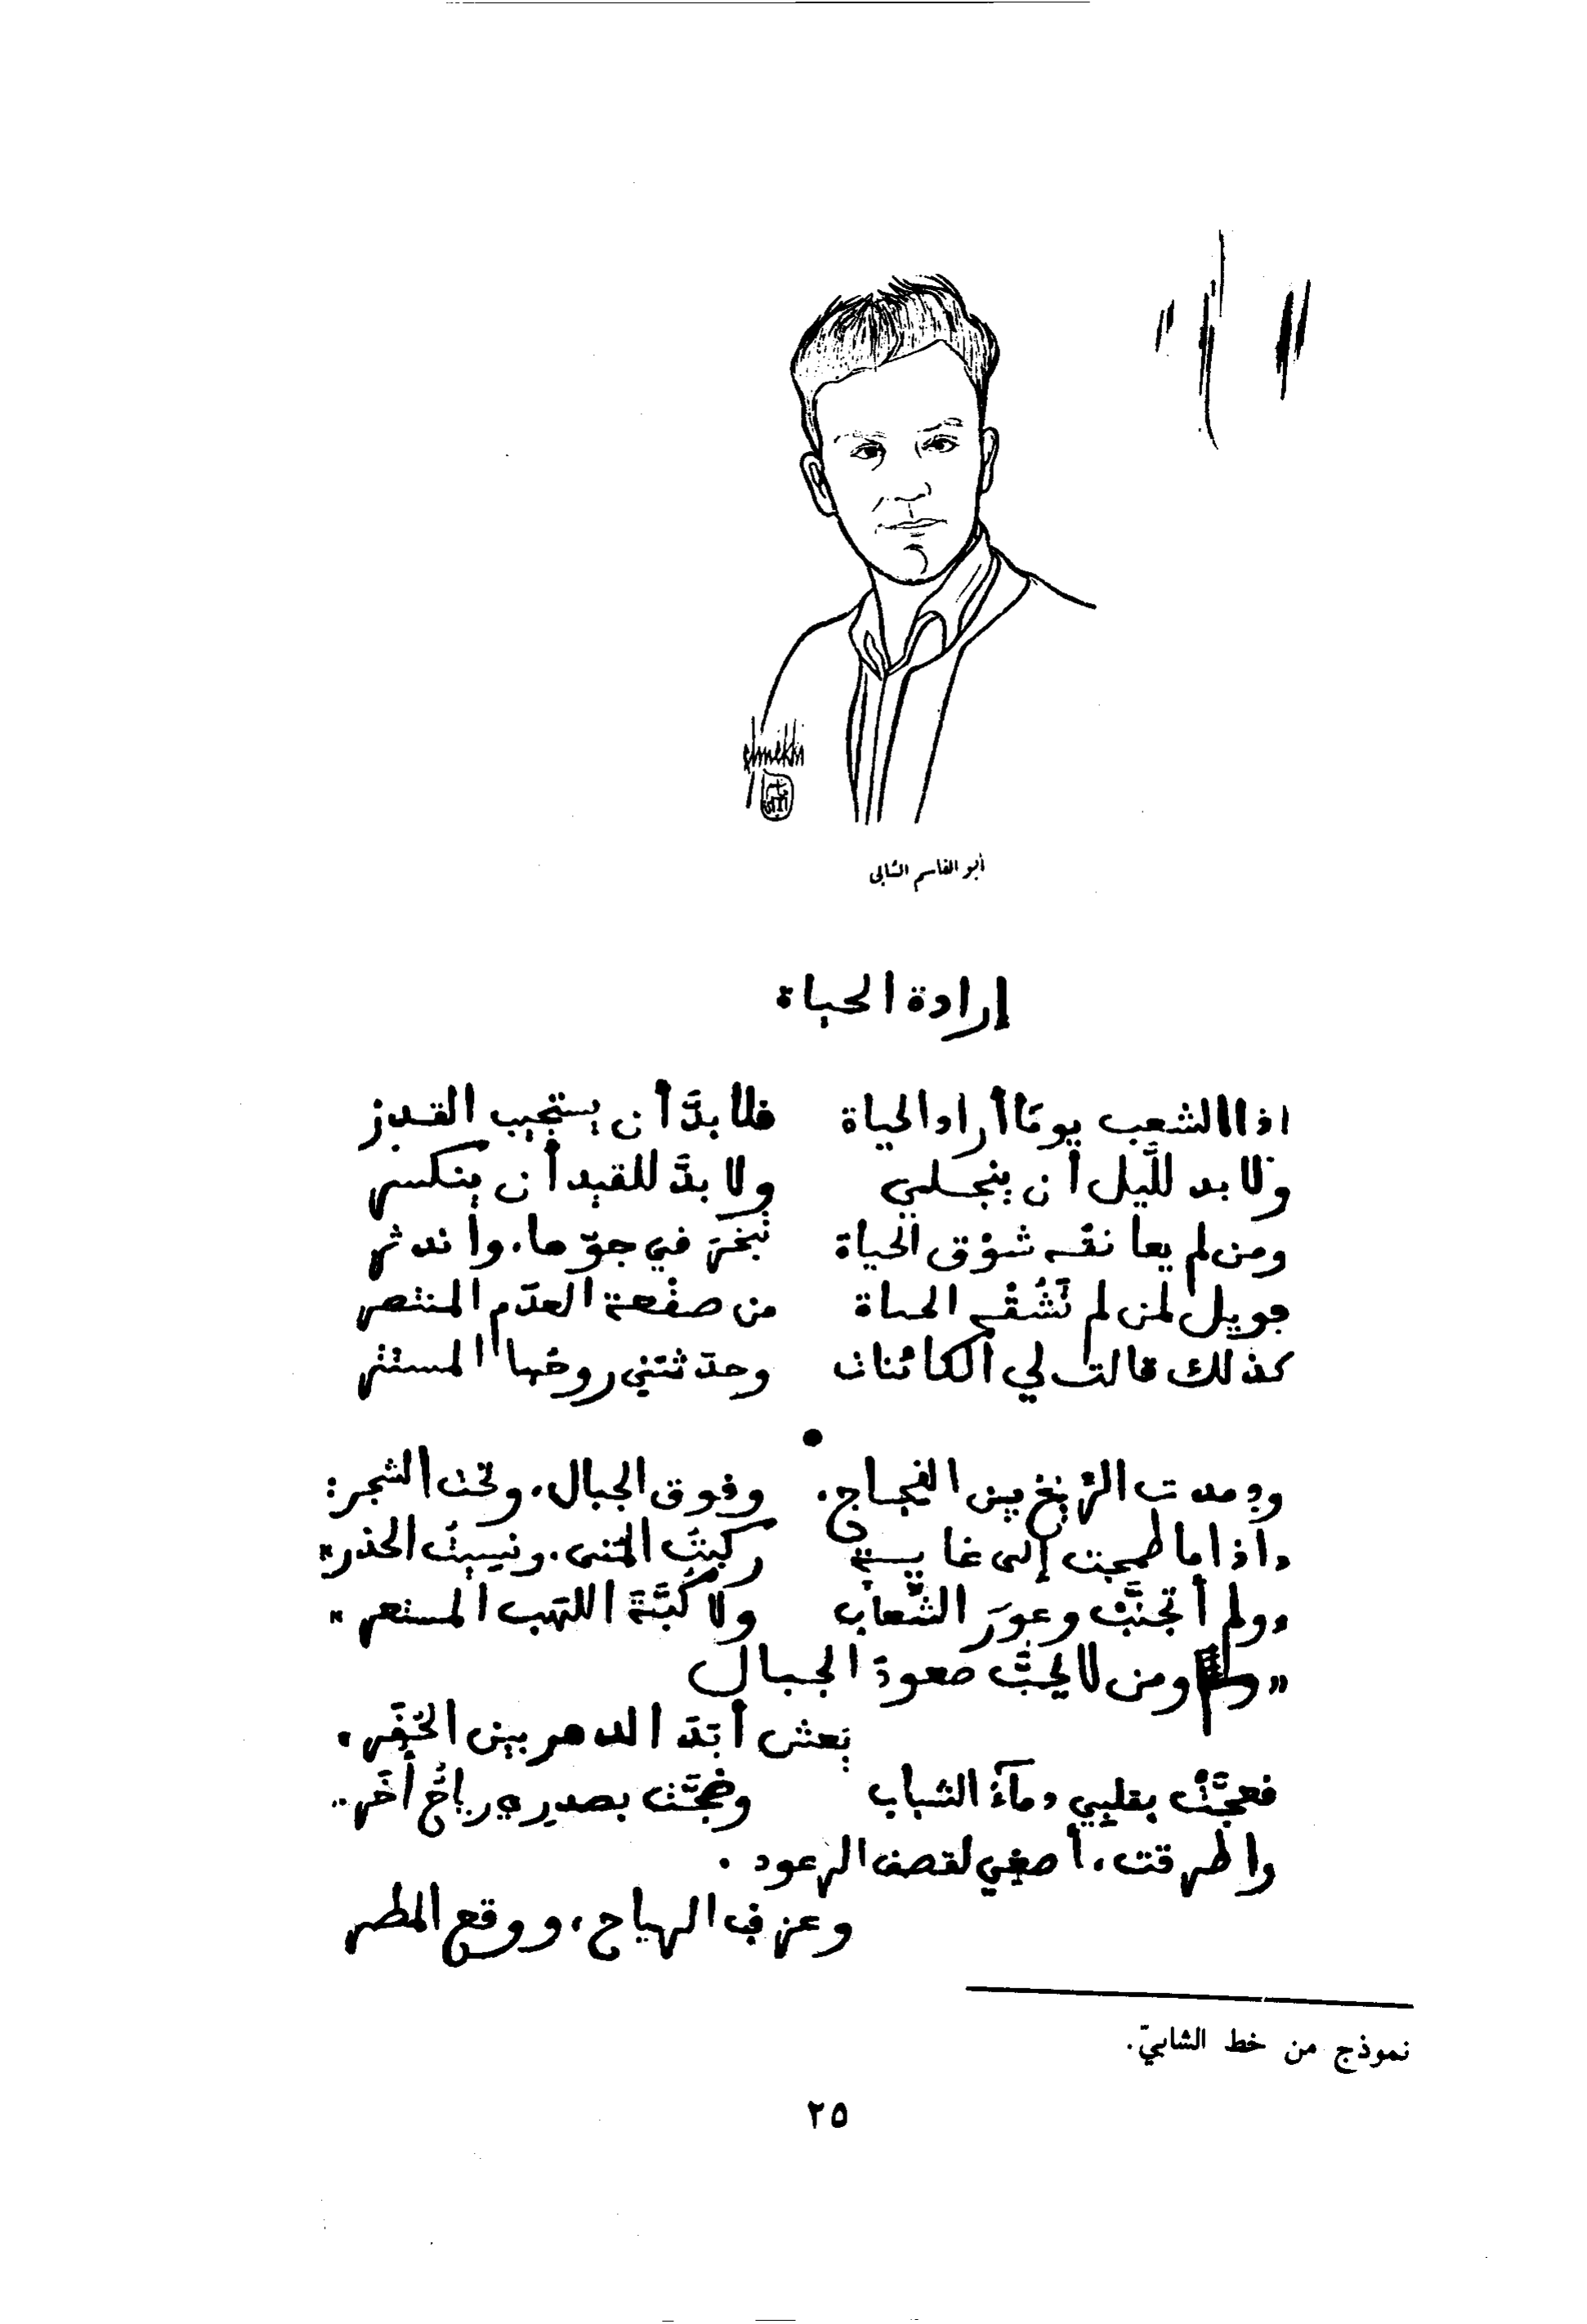 أبو القاسم الشابي
إرادة الحياة
اذا الشعب يومًا أراد الحياة فلا بدَّ أن يستجيب القدر
ولا بد للَّيل أن ينجلي ولا بدَّ للقيد أن ينكسر
ومن لم يعانقه شوْق الحياة تبخَّر في جوّها، واندثر
فويل لمن لم تَشُقْه الحياة من صفْعة العدَم المنتصر
كذلك قالت لي الكائنات وحدّثتني روحُها المستتر
ودمدمت الرِّيحُ بين الفجاج، وفوق الجبال، وتحت الشجر:
«اذا ما طمحت إلى غاية ركبتُ المنى، ونسيتُ الحذر»
«ولم أتجنَّبْ وعورَ الشِّعاب ولا كُبَّةَ اللهَب المستعر»
«ومن لا يحبّ صعودَ الجبال
يَعشْ أبَدَ الدهر بين الحُفَر،
فعجَّتْ بقلبي دمآءُ الشباب وضجَّت بصدري رياحٌ أُخَر..
وأطرقت، أصغي لقصف الرعود.
وعزف الرياح، ووقع المطر
نموذج من خط الشابيّ.
٢٥